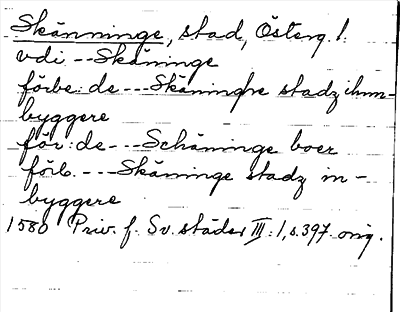 Skänninge, stad, Österg. l.
vdi -- Skäninge
förbe: de --- Skäninghe stadz ihnn-
byggere
för: de --- Schäninge boer
förb. --- Skäninge stadz in-
byggere
1580 Priv. f. Sv. städer III: 1, s. 397. orig.